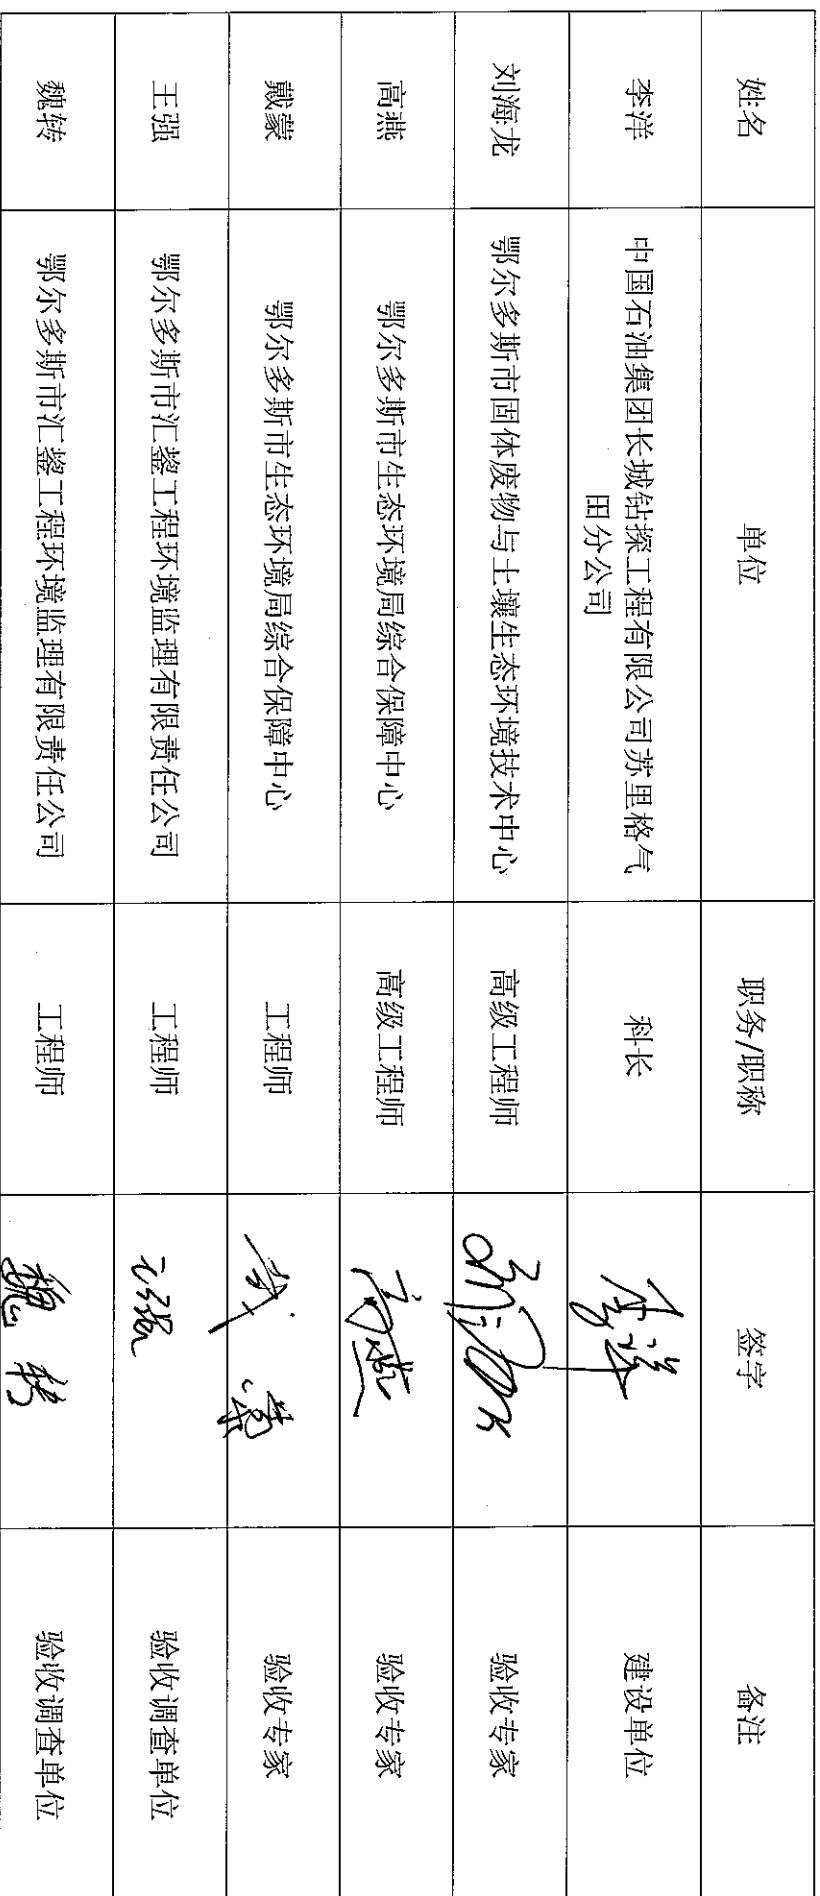 姓名 单位 职务/职称 签字 备注
李洋 中国石油集团长城钻探工程有限公司苏里格气 科长 李洋 建设单位
田分公司
刘海龙 鄂尔多斯市固体废物与土壤生态环境技术中心 高级工程师 验收专家
高燕 鄂尔多斯市生态环境局综合保障中心 高级工程师 高燕 验收专家
戴蒙 鄂尔多斯市生态环境局综合保障中心 工程师 验收专家
王强 鄂尔多斯市汇鋆工程环境监理有限责任公司 工程师 王强 验收调查单位
魏转 鄂尔多斯市汇鋆工程环境监理有限责任公司 工程师 魏转 验收调查单位